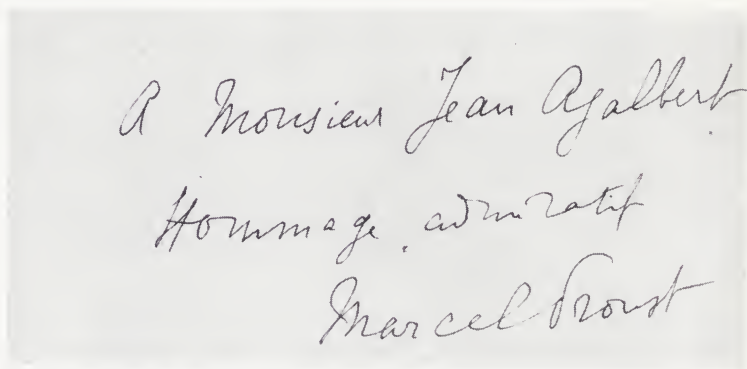 A Monsieur Jean Agalbert
Hommage admiratif
Marcel Proust